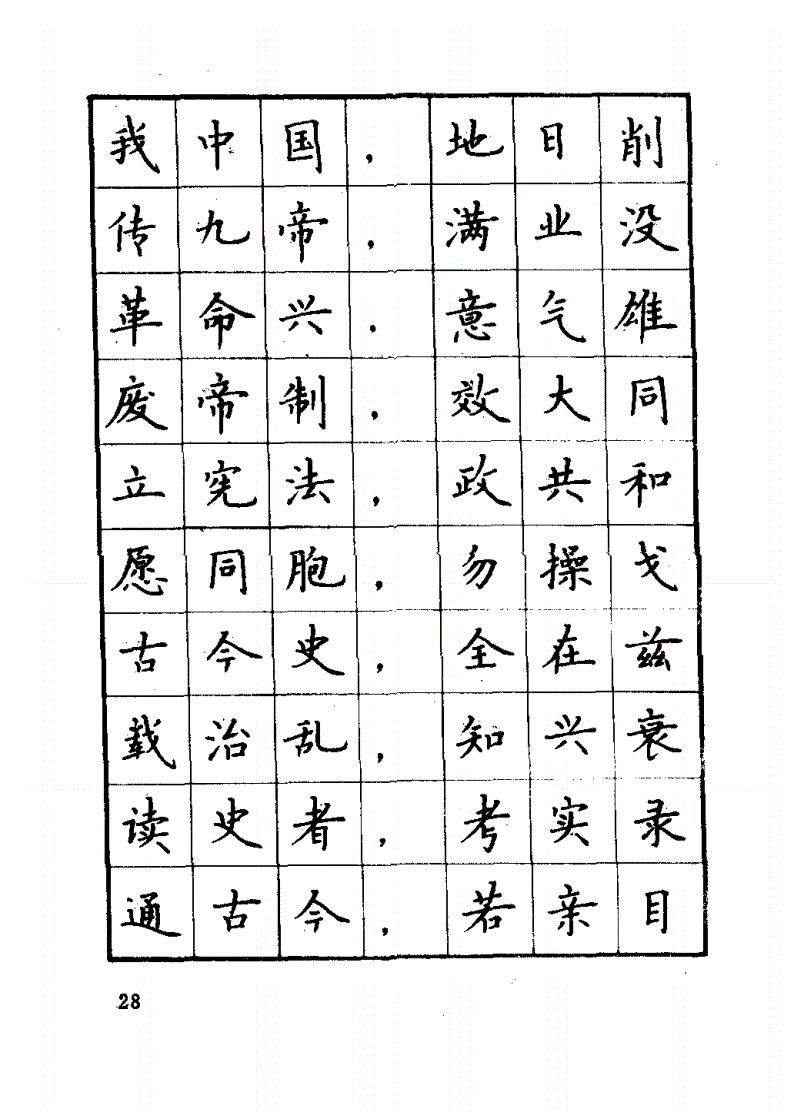 我中国，地日削
传九帝，满业没
革命兴，意气雄
废帝制，效大同
立宪法，政共和
愿同胞，勿操戈
古今史，全在兹
载治乱，知兴衰
读史者，考实录
通古今，若亲目
28